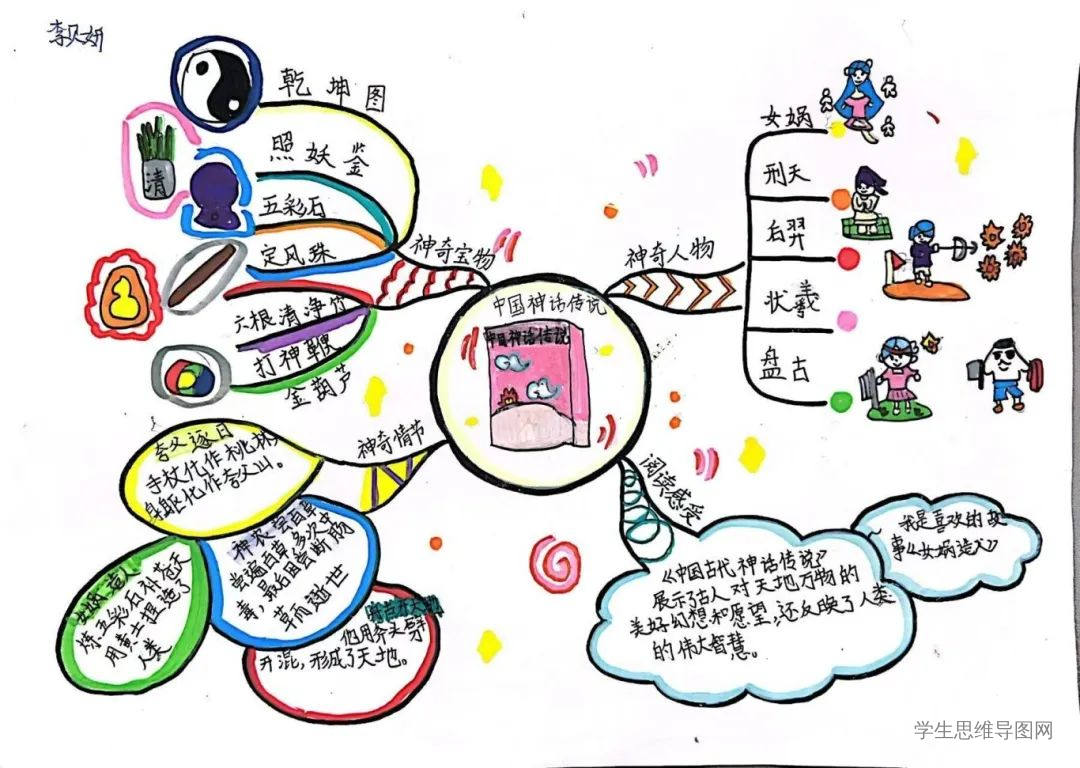 李贝妍
乾坤图
照妖鉴
五彩石
定风珠
六根清净竹
打神鞭
金葫芦
清
神奇宝物
神奇人物
女娲
刑天
后羿
状羲
盘古
中国神话传说
中国神话传说
神奇情节
夸父逐日
手杖化作桃林,
身躯化作夸父山。
神农尝百草
尝遍百草多次中
毒,最后因尝断肠
草而逝世
女娲造人
炼五彩石补苍天
用黄土捏造了
人类
盘古开天地
他用斧头劈
开混,形成了天地。
阅读感受
《中国古代神话传说》
展示了古人对天地万物的
美好幻想和愿望,还反映了人类
的伟大智慧。
我是喜欢的故
事《女娲造人》
学生思维导图网